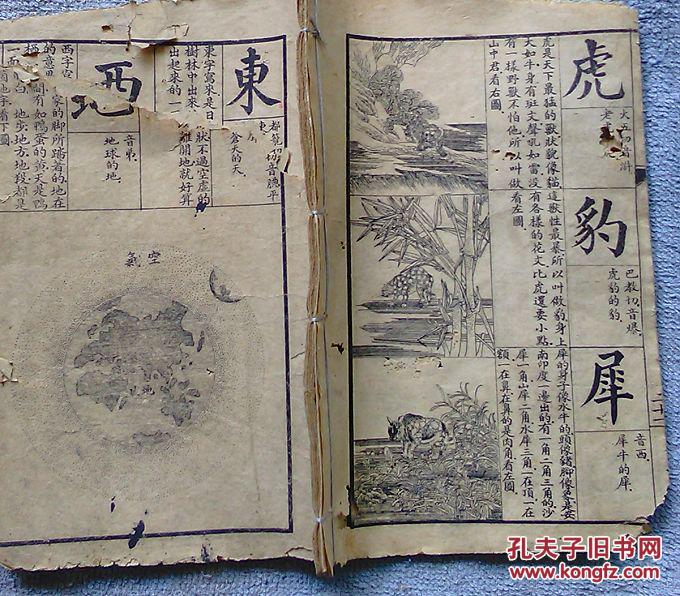 虎
火五切音滸
虎是天下最猛的獸狀貌像貓
大如牛身有斑文聲吼如雷沒
有一樣野獸不怕他所以叫做
山中君看右圖
豹
巴教切音爆
虎豹的豹
這獸性最暴所以叫做豹身上
有各樣的花文比虎還要小點
看左圖
犀
音西
犀牛的犀
犀的身子像水牛的頭像豬脚像象是安
南印度一邊出的有一角二角三角的沙
犀一角山犀二角水犀三角一在頂一在
額一在鼻在鼻的是肉角看左圖
東
都籠切音德平
東字寫來是日
樹林中出來
出起來的一
蒼天的天
狀不過空虛的
離開地就好算
地
音弟
地球的地
家的脚所踏着的地在
間有如鴨蛋的黄天是鴨
地步地方地段都是
西字古
的意思
空氣
地
孔夫子旧书网
www.kongfz.com